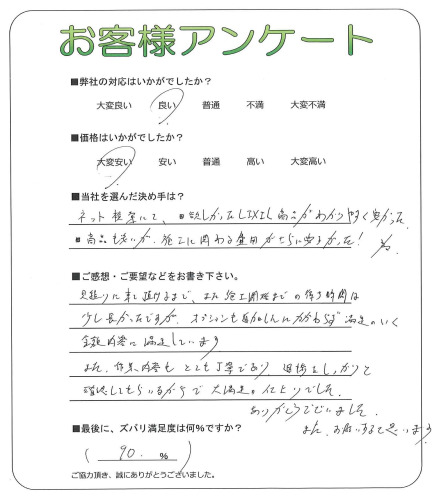 お客様アンケート
■弊社の対応はいかがでしたか?
大変良い 良い 普通 不満 大変不満
■価格はいかがでしたか?
大変安い 安い 普通 高い 大変高い
■当社を選んだ決め手は?
ネット検索にて、欲しかったLIXIL商品がわかりやすく安かった為
商品も安いが、施工に関わる費用がさらに安かった!
■ご感想・ご要望などをお書き下さい。
見積りに来て頂けるまで、また施工開始までの待ち時間は
少し長かったですが、オプションも
満足のいく
金額内容に満足しています
また、作業内容もとても丁寧であり、
しっかりと
確認してもらいながらで大満足の仕上りでした。
ありがとうございました。
また、お願いすると思います
■最後に、ズバリ満足度は何%ですか?
( 90. % )
ご協力頂き、誠にありがとうございました。